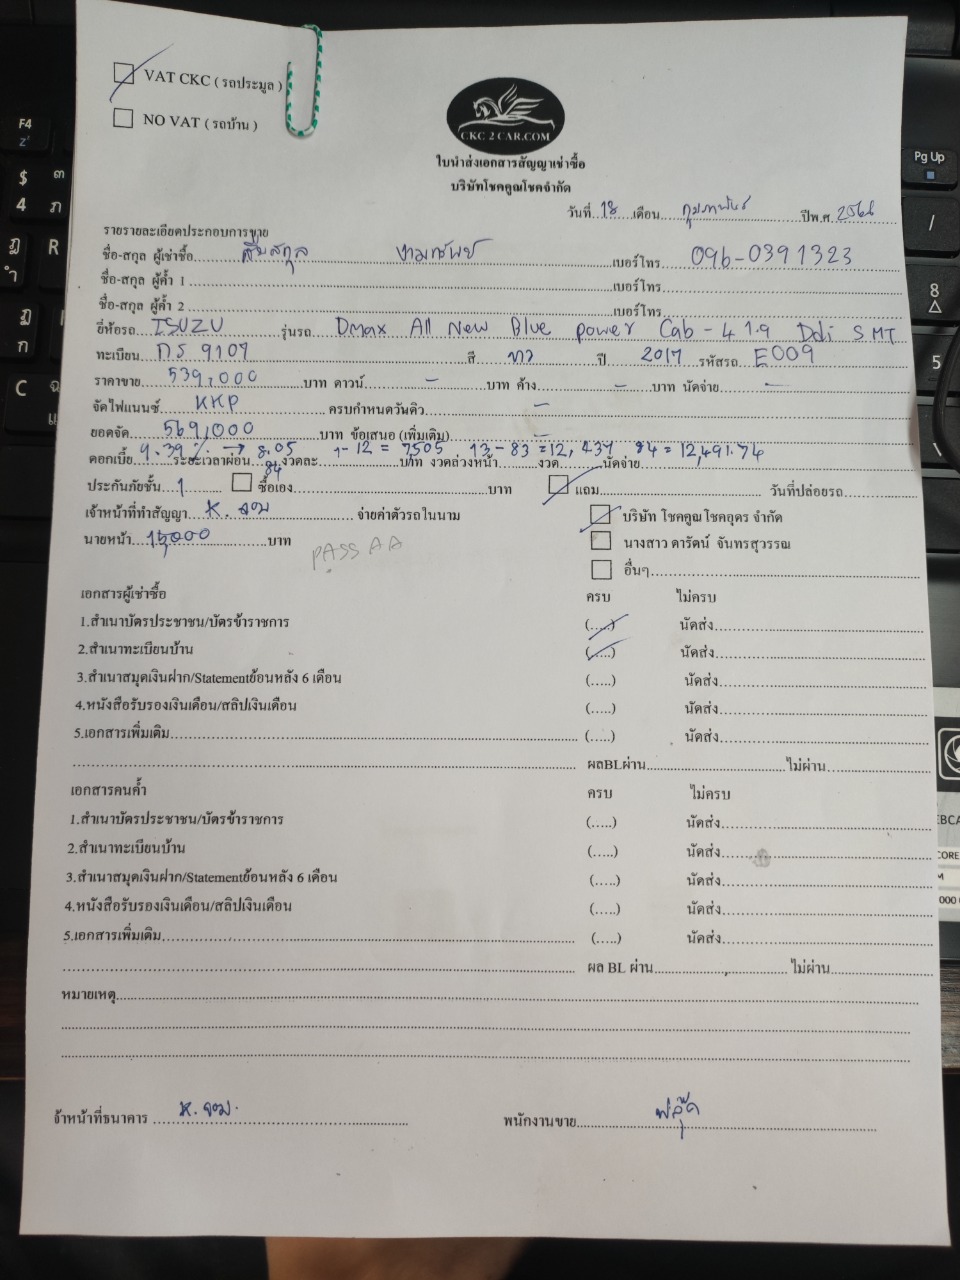 VAT CKC ( รถประมูล )
NO VAT ( รถบ้าน )
CKC 2 CAR.COM
ใบนำส่งเอกสารสัญญาเช่าซื้อ
บริษัทโชคคูณโชคจำกัด
วันที่..18....เดือน....กุมภาพันธ์............ปีพ.ศ.2568
รายรายละเอียดประกอบการขาย
ชื่อ-สกุล ผู้เช่าซื้อ..........สืบสกุล งามทรัพย์..........เบอร์โทร..096-0391323
ชื่อ-สกุล ผู้ค้ำ 1 ..........เบอร์โทร..........
ชื่อ-สกุล ผู้ค้ำ 2 ..........เบอร์โทร..........
ยี่ห้อรถ...ISUZU.......รุ่นรถ....Dmax All New Blue power Cab - 4 1.9 Ddi S MT
ทะเบียน...9107..........สี......ขาว......ปี.......2017...รหัสรถ..E009
ราคาขาย.....539,000.......บาท ดาวน์.........-.........บาท ค้าง.........-.........บาท นัดจ่าย.......-
จัดไฟแนนซ์........KKP..........ครบกำหนดวันดิว..........-
ยอดจัด.......569,000..........บาท ข้อเสนอ (เพิ่มเติม)..........-
4.39 % → 8.05 1-12 = 7505 13-83 = 12,437 84 = 12,491.74
ดอกเบี้ย..........ระยะเวลาผ่อน....84....งวดละ..........บาท งวดล่วงหน้า.........งวด.........นัดจ่าย..........
ประกันภัยชั้น...1..... ซื้อเอง..........บาท แถม..........วันที่ปล่อยรถ..........
เจ้าหน้าที่ทำสัญญา....K. จอม.......... จ่ายค่าตัวรถในนาม บริษัท โชคคูณโชคอุดร จำกัด
นายหน้า..15,000..........บาท
PASS AA
นางสาว ดารัตน์ จันทรสุวรรณ
อื่นๆ..........
เอกสารผู้เช่าซื้อ ครบ ไม่ครบ
1.สำเนาบัตรประชาชน/บัตรข้าราชการ (.....) นัดส่ง..........
2.สำเนาทะเบียนบ้าน (.....) นัดส่ง..........
3.สำเนาสมุดเงินฝาก/Statementย้อนหลัง 6 เดือน (.....) นัดส่ง..........
4.หนังสือรับรองเงินเดือน/สลิปเงินเดือน (.....) นัดส่ง..........
5.เอกสารเพิ่มเติม.......... (.....) นัดส่ง..........
.......... ผลBLผ่าน..........ไม่ผ่าน..........
เอกสารคนค้ำ ครบ ไม่ครบ
1.สำเนาบัตรประชาชน/บัตรข้าราชการ (.....) นัดส่ง..........
2.สำเนาทะเบียนบ้าน (.....) นัดส่ง..........
3.สำเนาสมุดเงินฝาก/Statementย้อนหลัง 6 เดือน (.....) นัดส่ง..........
4.หนังสือรับรองเงินเดือน/สลิปเงินเดือน (.....) นัดส่ง..........
5.เอกสารเพิ่มเติม.......... (.....) นัดส่ง..........
.......... ผล BL ผ่าน.......... ไม่ผ่าน..........
หมายเหตุ..........
จ้าหน้าที่ธนาคาร ....K. จอม........... พนักงานขาย..........
F4
Pg Up
$
4
R
C
/
8
5